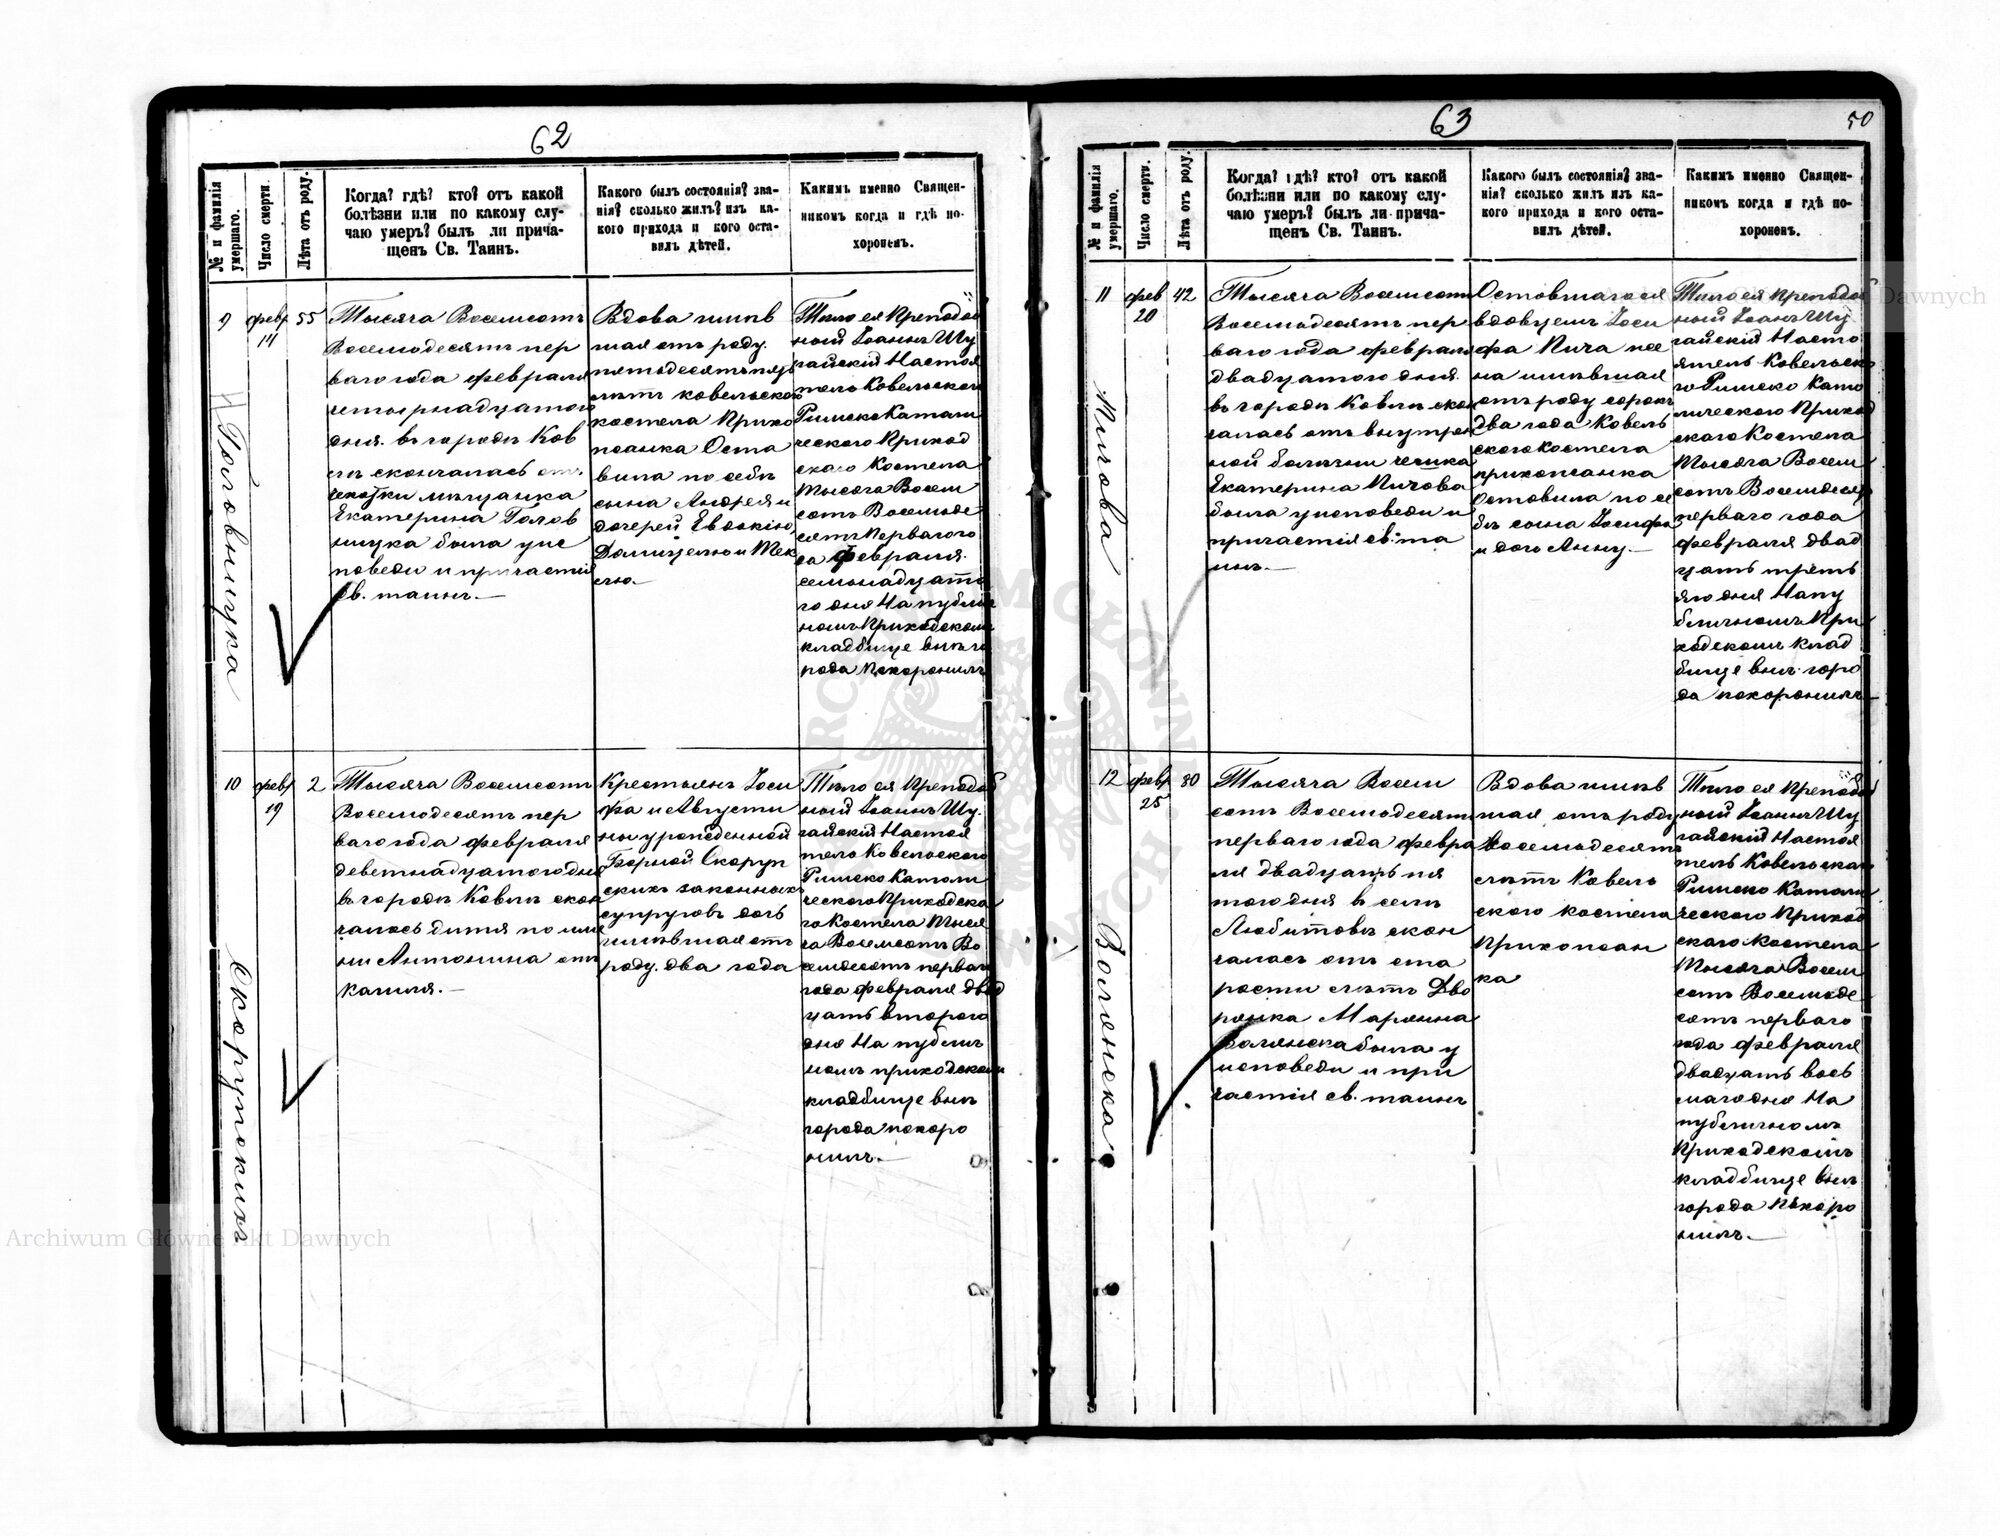 62
№ и фамилія умершаго.
Число смерти.
Лѣта отъ роду.
Когда? гдѣ? кто? отъ какой
болѣзни или по какому слу-
чаю умеръ? былъ ли прича-
щенъ Св. Таинъ.
Какого былъ состоянія? зва-
нія? сколько жилъ? изъ ка-
кого прихода и кого оста-
вилъ дѣтей.
Какимъ именно Священ-
никомъ когда и гдѣ по-
хороненъ.
9
Головщука
февр
14
55
Тысяча Восемсотъ
Восемдесятъ пер
ваго года февраля
четырнадцатого
дня въ городѣ Ков
лѣ скончалась отъ
чехотки мѣщанка
Екатерина Голов
щука была у ис
поведи и причастія
св. таинъ.—
Вдова имѣв
шая отъ роду
пятьдесятъ пять
лѣтъ ковельскаго
костела прихо
жанка Оста
вила по себѣ
сына Андрея и
дочерей Евдокію
Домицелю и Тек
лю.—
Тѣло ея Преподоб
ный Іоаннъ Шу
гайскій Настоя
тель Ковельскаго
Римско Католи
ческаго Приход
скаго Костела
Тысяча Восем
сотъ Восемде
сятъ Перваго го
да февраля
семьнадцато
го дня На публич
номъ Приходскомъ
кладбище внѣ го
рода Похоронилъ
10
Скорупскихъ
февр
19
2
Тысяча Восемсотъ
Восемдесятъ пер
ваго года февраля
деветнадцатого дня
въ городѣ Ковлѣ скон
чалось дитя по име
ни Антонина отъ
кашля.—
Крестьянъ Іоси
фа и Августи
ны урожденной
Скоруп
скихъ законныхъ
супруговъ дочь
имѣвшая отъ
роду два года
Тѣло ея Преподоб
ный Іоаннъ Шу
гайскій Настоя
тель Ковельскаго
Римско Католи
ческаго Приходска
го Костела Тыся
ча Восемсотъ Во
семдесятъ перваго
года февраля двад
цать втораго
дня На публич
номъ приходскомъ
кладбище внѣ
города похоро
нилъ.—
63
50
№ и фамилія умершаго.
Число смерти.
Лѣта отъ роду.
Когда? гдѣ? кто? отъ какой
болѣзни или по какому слу-
чаю умеръ? былъ ли прича-
щенъ Св. Таинъ.
Какого былъ состоянія? зва-
нія? сколько жилъ изъ ка-
кого прихода и кого оста-
вилъ дѣтей.
Какимъ именно Священ-
никомъ когда и гдѣ по-
хороненъ.
11
Пичова
фев
20
42
Тысяча Восемсотъ
Восемдесятъ пер
ваго года февраля
двадцатого дня
въ городѣ Ковлѣ скон
чалась отъ внутрен
ной болѣзни
Екатерина Пичова
была у исповеди и
причастія св. та
инъ.—
Оставшагося
вдовцемъ Іоси
фа Пича же
на имѣвшая
отъ роду сорокъ
два года Ковель
скаго Костела
прихожанка
Оставила по се
бѣ сына Іосифа
и дочь Анну.—
Тѣло ея преподоб
ный Іоаннъ Шу
гайскій Насто
ятель Ковельска
го Римско Като
лическаго Приход
скаго Костела
Тысяча Восем
сотъ Восемдесятъ
перваго года
февраля двад
цать треть
яго дня На пу
бличномъ При
ходскомъ клад
бище внѣ горо
да похоронилъ—
12
Волянска
февр
25
80
Тысяча Восем
сотъ Восемдесятъ
перваго года февра
ля двадцать пя
того дня в селѣ
Любитовъ скон
чалась отъ ста
рости лѣтъ Дво
рянка Марянна
Волянска была у
исповеди и при
частія св. таинъ
Вдова имѣв
шая отъ роду
Восемдесятъ
лѣтъ Ковель
скаго костела
Прихожан
ка
Тѣло ея Преподоб
ный Іоаннъ Шу
гайскій Настоя
тель Ковельскаго
Римско Католи
ческаго Приход
скаго Костела
Тысяча Восем
сотъ Восемде
сятъ перваго
года февраля
двадцать вось
маго дня На
публичномъ
Приходскомъ
кладбище внѣ
города Похоро
нилъ.—
Archiwum Główne Akt Dawnych
Archiwum Główne Akt Dawnych
ARCHIWUM GŁÓWNE AKT DAWNYCH